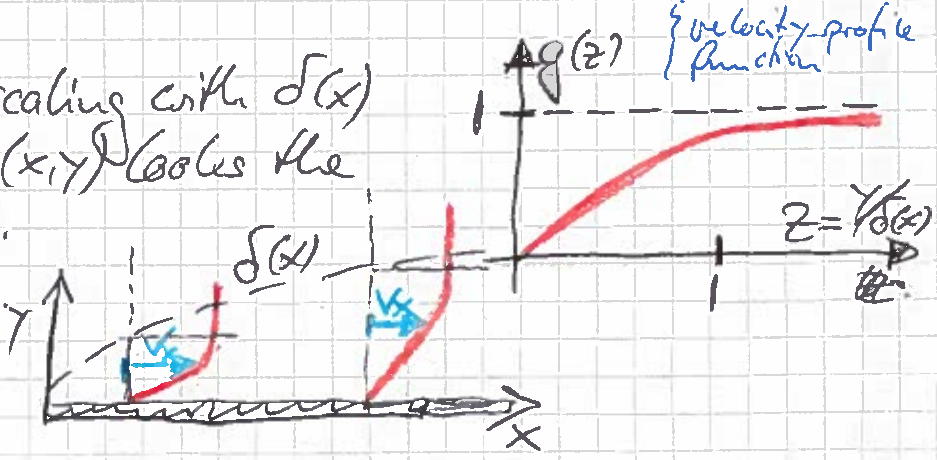 caling with δ(x)
(x,y) looks the
{ velocity-profile
function
g(z)
1
z = y/δ(x)
1
δ(x)
y
Vx
Vx
x